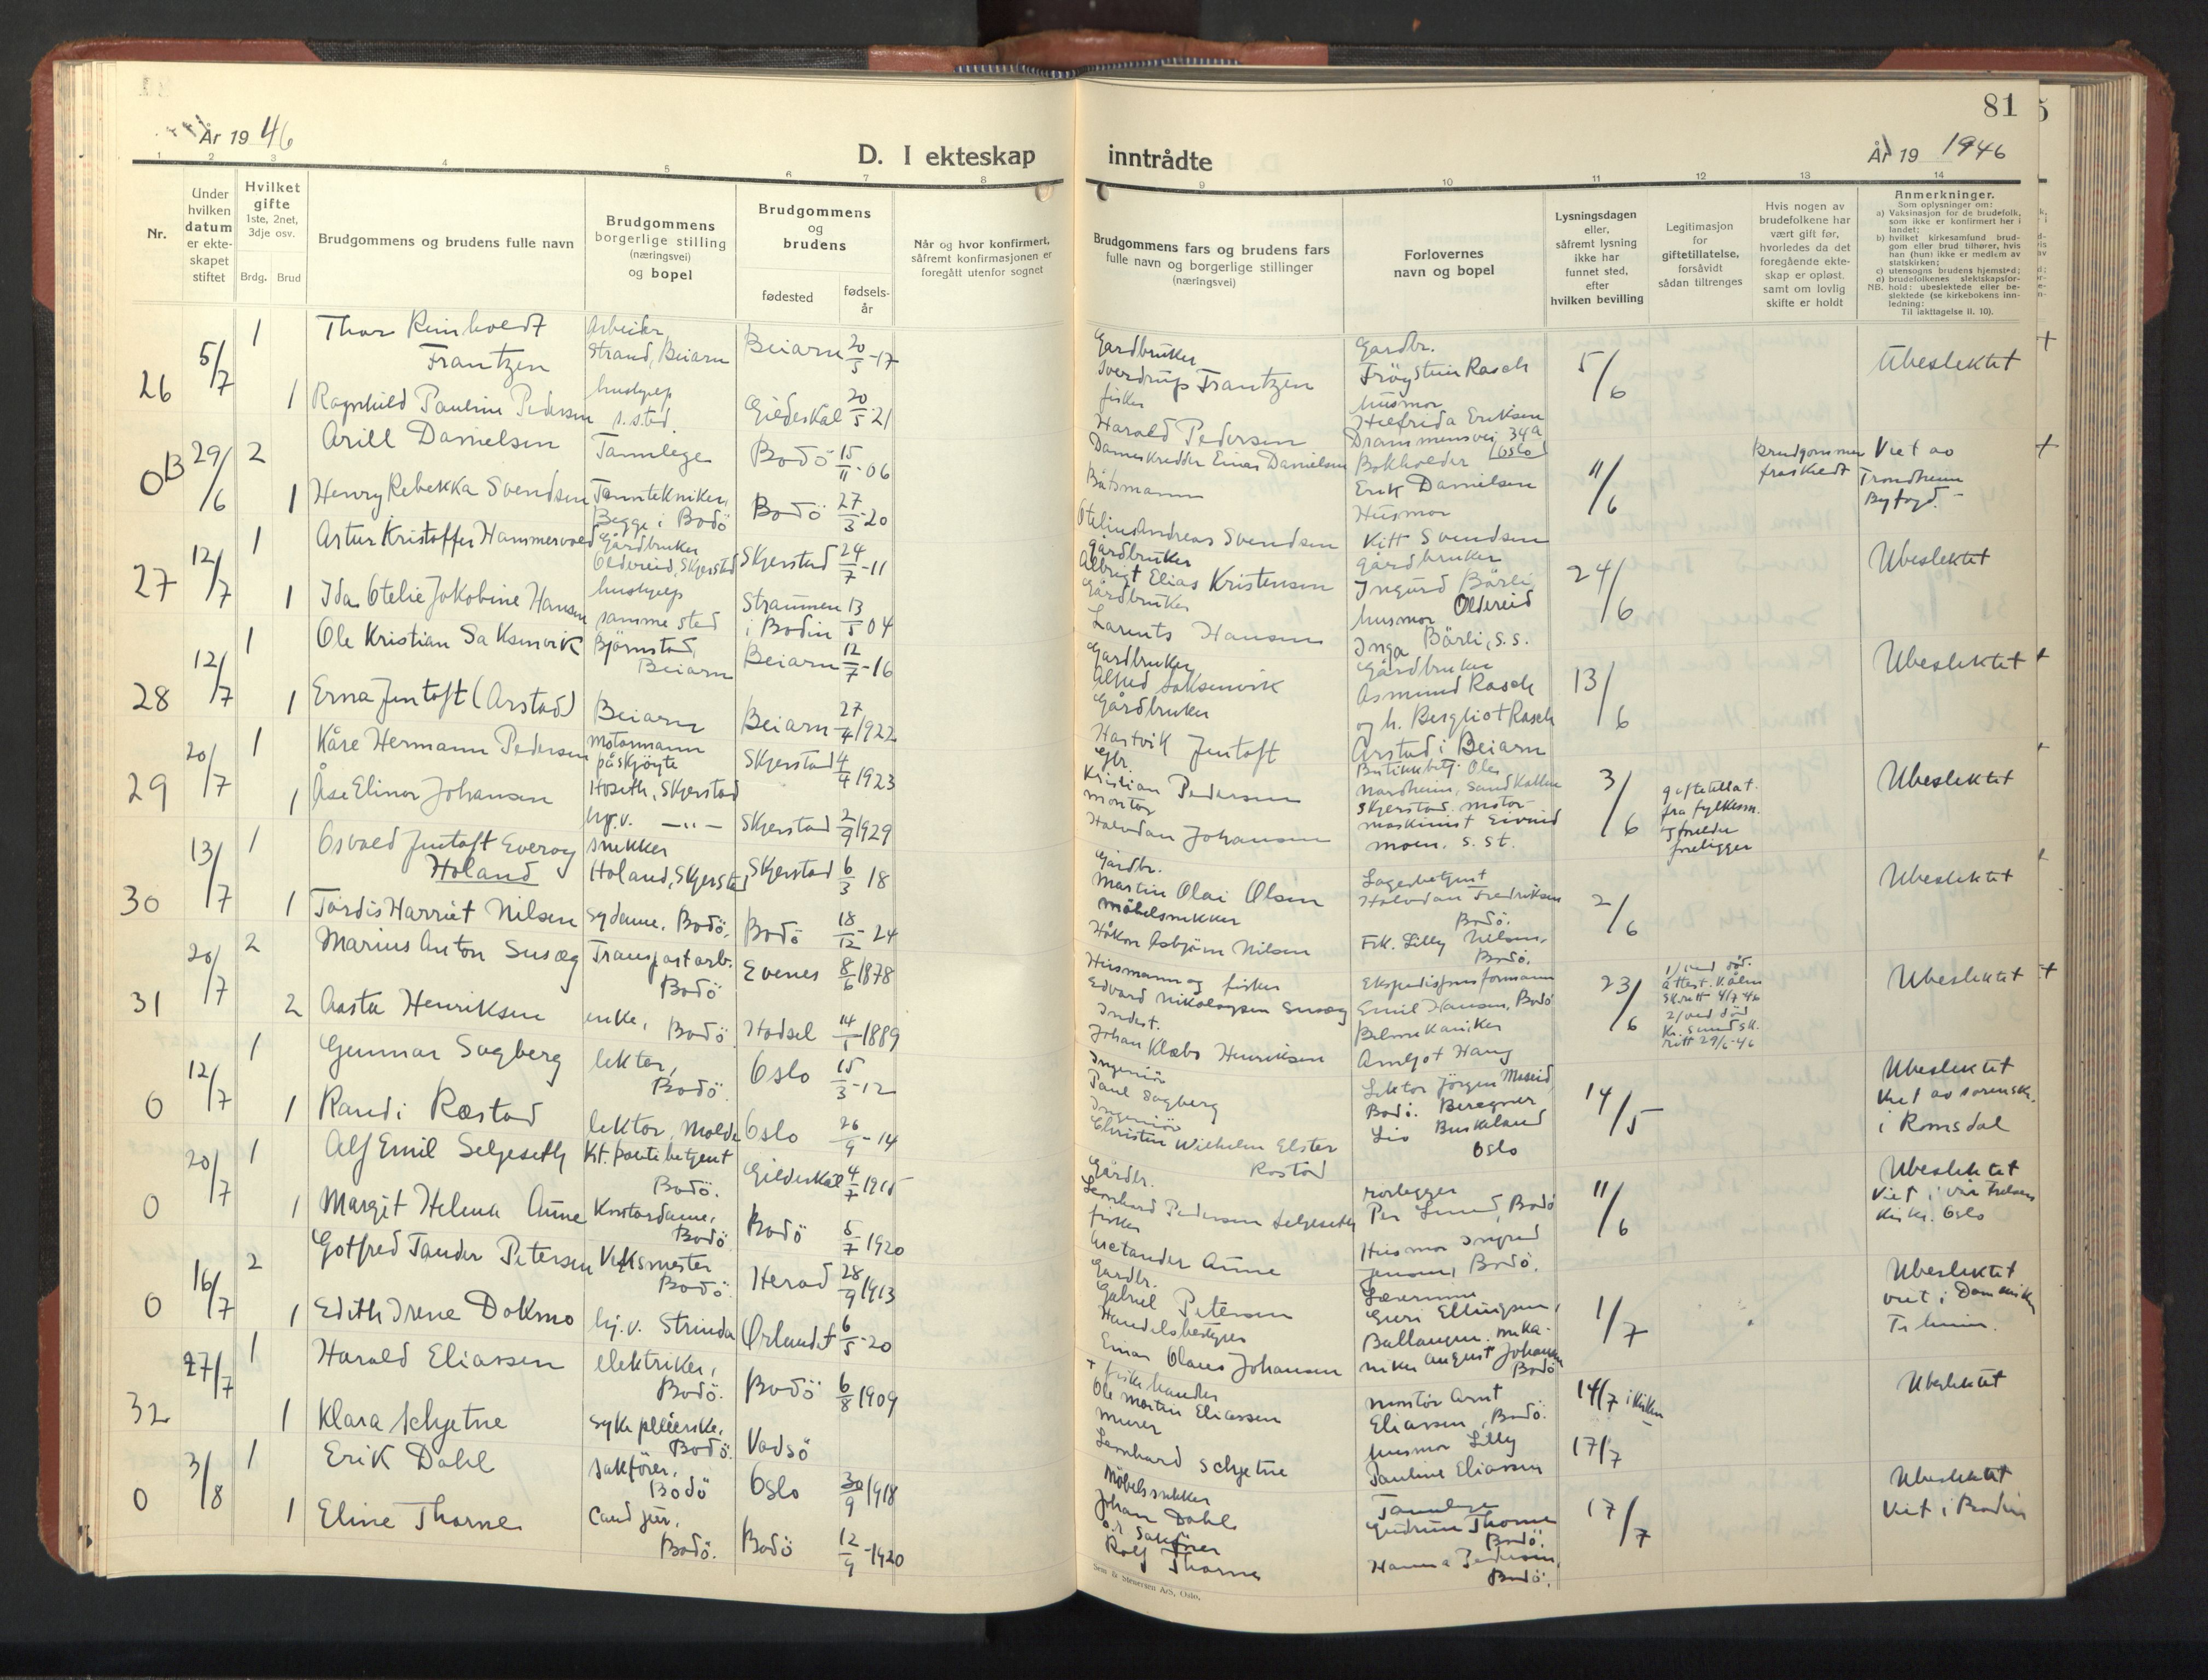 År 1946
D. I ekteskap
1 2 3 4 5 6 7 8
Nr.
Under
hvilken
datum
er ekte-
skapet
stiftet
Hvilket
gifte
1ste, 2net,
3dje osv.
Brdg. Brud
Brudgommens og brudens fulle navn
Brudgommens
borgerlige stilling
(næringsvei)
og bopel
Brudgommens
og
brudens
fødested
fødsels-
år
Når og hvor konfirmert,
såfremt konfirmasjonen er
foregått utenfor sognet
26 5/7 1 Thor Reinholdt
Frantzen
Arbeider
Strand, Beiarn
Beiarn 20/5-17
1 Ragnhild Pauline Pedersen
hushjelp
s. sted.
Gildeskål 20/5-21
OB 29/6 2 Arill Danielsen Tannlege Bodö 15/11-06
1 Henry Rebekka Svendsen Tanntekniker,
Begge i Bodö
Bodö 27/3-20
27 12/7 1 Artur Kristoffer Hammervold Gårdbruker
Oldereid, Skjerstad
Skjerstad 24/7-11
1 Ida Otelie Jakobine Hansen hushjelp
samme sted
Straumen
i Bodin
13/5 04
28 12/7 1 Ole Kristian Saksenvik Bjørnstad,
Beiarn
Beiarn 12/7-16
1 Erna Jentoft (Arstad) Beiarn Beiarn 27/4 1922
29 20/7 1 Kåre Hermann Pedersen Motormann
på skjöyte
Hoseth, Skjerstad
Skjerstad 4/4 1923
1 Åse Elinor Johansen hj.v. —"— Skjerstad 2/9 1929
30 13/7 1 Osvald Jentoft Evensen
Holand
snekker
Holand, Skjerstad
Skjerstad 6/3 18
1 Tordis Harriet Nilsen sydame, Bodö, Bodö 18/12-24
31 20/7 2 Marius Anton Susæg Transportarb.
Bodö
Evenes 8/6 1878
2 Aasta Henriksen enke, Bodö Hadsel 14/1-1889
0 12/7 1 Gunnar Sagberg lektor,
Bodö.
Oslo 15/3-12
1 Randi Ræstad lektor, Molde Oslo 26/9-14
0 20/7 1 Alf Emil Seljeseth Kt. politibetjent
Bodö.
Gildeskål 4/7 1915
1 Margit Helena Aune Kontordame,
Bodö
Bodö 5/7 1920
0 16/7 2 Gotfred Tander Petersen Verksmester
Bodö.
Herad 28/9 1913
1 Edith Irene Dokmo hj.v. Strinda Ørlandet 6/5-20
32 27/7 1 Harald Eliassen elektriker,
Bodö.
Bodö 6/8 1909
1 Klara Schjetne sykepleierske,
Bodö.
Vadsö
0 3/8 1 Erik Dahl sakförer,
Bodö
Oslo 30/9 1918
1 Eline Thorne Cand jur.
Bodö.
Bodö 12/9-1920
81
inntrådte
År 19 1946
9 10 11 12 13 14
Brudgommens fars og brudens fars
fulle navn og borgerlige stillinger
(næringsvei)
Forlovernes
navn og bopel
Lysningsdagen
eller,
såfremt lysning
ikke har
funnet sted,
efter
hvilken bevilling
Legitimasjon
for
giftetillatelse,
forsåvidt
sådan tiltrenges
Hvis nogen av
brudefolkene har
vært gift før,
hvorledes da det
foregående ekte-
skap er opløst,
samt om lovlig
skifte er holdt
Anmerkninger.
Som oplysninger om:
a) Vaksinasjon for de brudefolk,
som ikke er konfirmert her i
landet;
b) hvilket kirkesamfund brud-
gom eller brud tilhører, hvis
han (hun) ikke er medlem av
statskirken;
c) utensogns brudens hjemsted;
d) brudefolkenes slektskapsfor-
hold: ubeslektede eller be-
slektede (se kirkebokens inn-
ledning:
NB.
Til iakttagelse II. 10).
Gardbruker
Sverdrup Frantzen
fisker
Harald Pedersen
Gardbr.
Fröystein Rasch
husmor
Hilfrida Eriksen
5/6
Ubeslektet
Dameskredder Einar Danielsen
Båtsmann
Otelius Andreas Svendsen
Drammensvei 34a
Oslo
Bokholder
Erik Danielsen
Husmor
Kitt Svendsen
11/6
Brudgommen
fraskilt
Viet av
Trondheim
Byfogd.
gårdbruker
Albrigt Elias Kristensen
gårdbruker
Larents Hansen
gårdbruker
Ingvard Bårli
Oldereid
husmor
Inga Bårli, s.s.
24/6
Ubeslektet
Gardbruker
Alfred Saksenvik
Gårdbruker
Hartvik Jentoft
Gårdbruker
Asmund Rasch
og h. Bergliot Rasch
Arstad i Beiarn
13/6
Ubeslektet
Gbr.
Kristian Pedersen
montör
Halvdan Johansen
Butikkbetj. Ole
Nordheim, Sandkollen
Skjerstad. motor-
maskinist Eivind
Moen. s. st.
3/6
giftetillat.
fra fylkesm.
og foreldre
foreligger
Ubeslektet
Gårdbr.
Martin Olai Olsen
Möbelsnekker
Håkon Asbjörn Nilsen
Lagerbetjent
Halvdan Fredriksen
Bodö.
Frk. Lilly Nilsen,
Bodö.
2/6
Ubeslektet
Husmann og fisker
Edvard Nikolaysen Susæg
Johan Klæbo Henriksen
Ekspedisjonsformann
Emil Hansen, Bodö
Bilmekaniker
Arnljot Haug
23/6
1/ ved död.
2/ ved död
Ubeslektet
Ingeniör
Paul Sagberg
Ingeniör
Christen Wilhelm Elster
Rastad
Lektor Jörgen
Bodö. Beregner
Liv Buskeland
Oslo
14/5
Ubeslektet
Viet av sorensk.
i Romsdal
Gårdbr.
Leonhard Pedersen Seljeseth
fisker
Metander Aune
rörlegger
Per Lund, Bodö
Husmor Ingrid
Jensen, Bodö.
11/6
Ubeslektet
Viet i Vår Frelsers
Kirke. Oslo
Gardbr.
Gabriel Petersen
Handelsbestyrer
Einar Olaus Johansen
Lærerinne
Guri Ellingsen,
Ballangen. meka-
niker August Johansen
Bodö
1/7
Ubeslektet
viet i Domkirken
Tr.heim.
+ fiskehandler
Ole Martin Eliassen
Murer
Leonhard Schjetne
montör Arnt
Eliassen, Bodö.
husmor Lilly
Pauline Eliassen
14/7 i kirken
17/7
Ubeslektet
Möbelsnekker
Johan Dahl
o.r. Sakförer
Rolf Thorne
Tannlege
Gudrun Thorne
Bodö.
Hanna Pedersen,
Bodö.
17/7
Ubeslektet
Viet i Bodin
Sem & Stenersen A/S, Oslo.